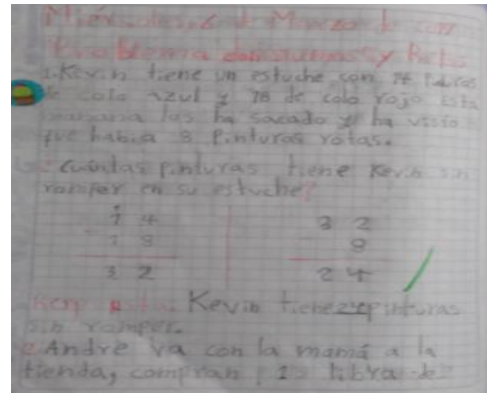 Miércoles, de Marzo de
Problema con sumas y Resta
1. Kevin tiene un estuche con 14
de colo azul y 18 de colo rojo Esta
mañana las ha sacado y ha visto
que habia 8 Pinturas rotas.
Cuántas Pinturas tiene Kevin sin
romper en su estuche?
1
1 4 3 2
1 8 8
3 2 2 4
Kevin tiene 24 pinturas
sin romper.
Andre va con la mamá a la
tienda, compran 1 libra de